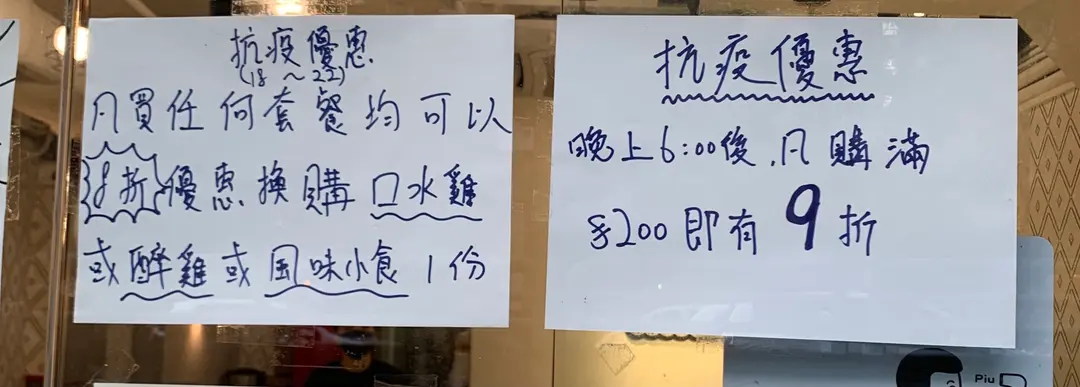 抗疫優惠
(18～22)
凡買任何套餐均可以
8折優惠換購口水雞
或醉雞或風味小食1份
抗疫優惠
晚上6:00後,凡購滿
$200即有9折
Piu